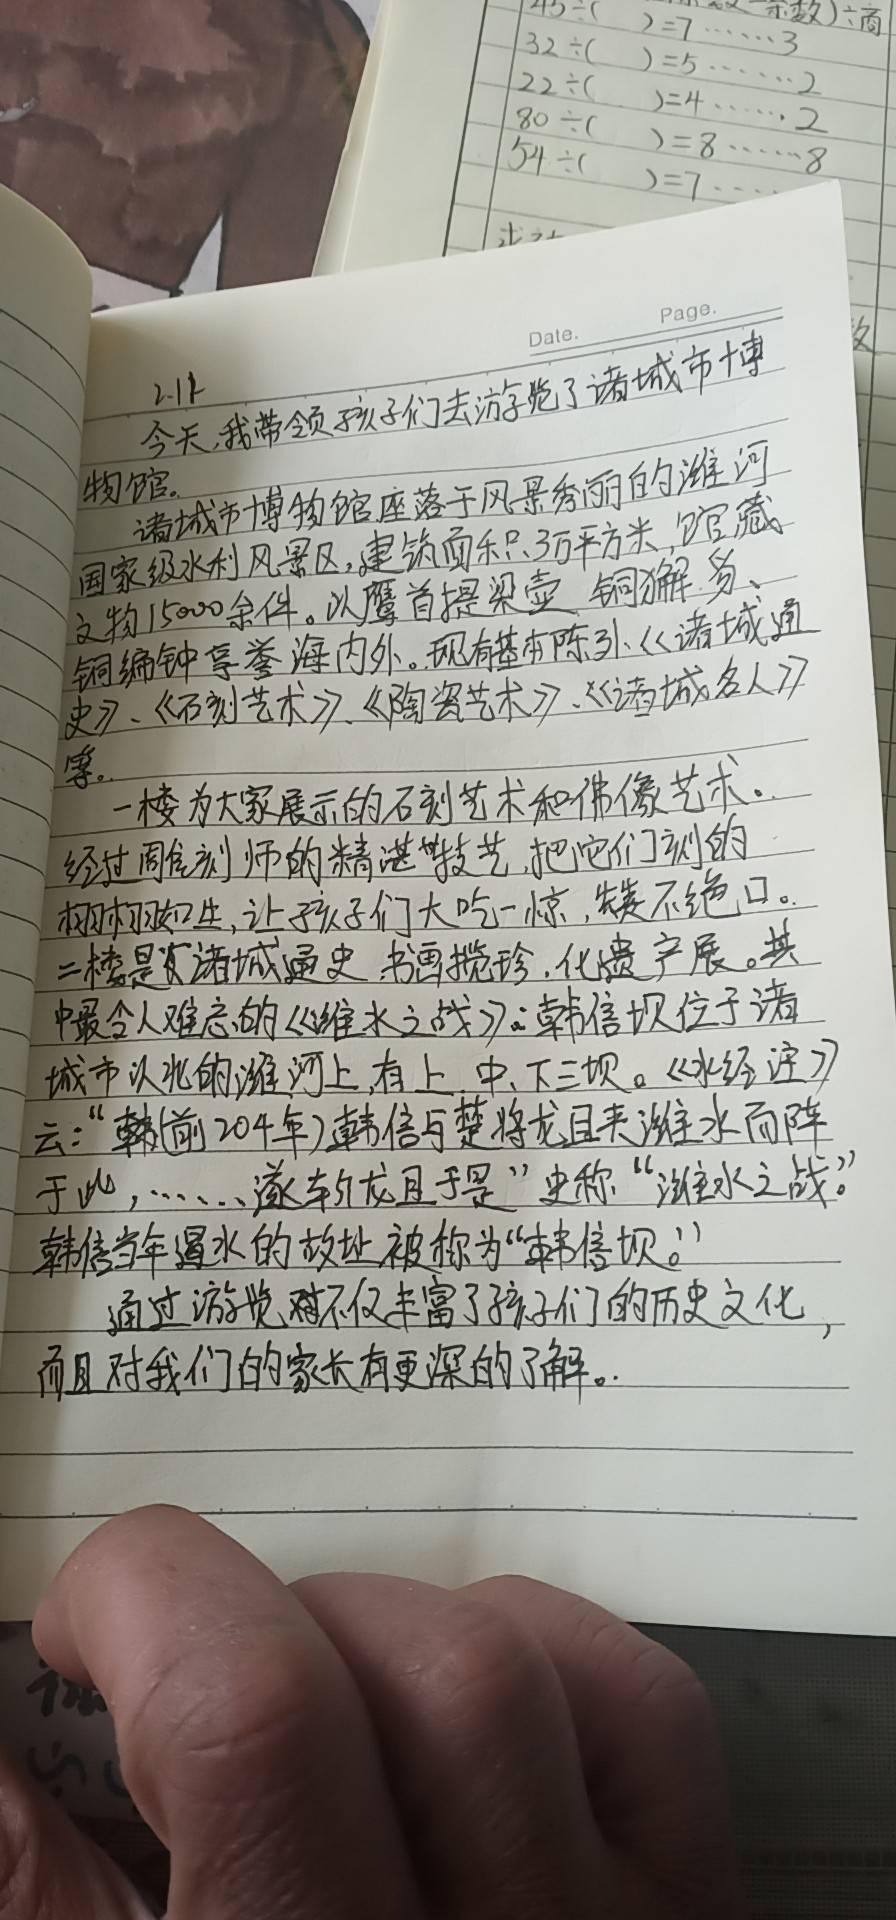 数)÷商
45÷( )=7……3
32÷( )=5……2
22÷( )=4……2
80÷( )=8……8
54÷( )=7……
数
Date. Page.
今天,我带领孩子们去游览了诸城市博
物馆。
诸城市博物馆座落于风景秀丽的潍河
国家级水利风景区,建筑面积只3万平方米,馆藏
文物15000余件。以鹰首提梁壶、铜獬豸、
铜编钟享誉海内外。现有基本陈列、《诸城通
史》、《石刻艺术》、《陶瓷艺术》、《诸城名人》
等。
一楼为大家展示的石刻艺术和佛像艺术。
经过周刻师的精湛技艺,把它们刻的
栩栩如生,让孩子们大吃一惊,赞不绝口。
二楼是诸城通史、书画揽珍、化遗产展。其
中最令人难忘的《潍水之战》:韩信坝位于诸
城市以北的潍河上,有上、中、下三坝。《水经注》
云:“韩(前204年)韩信与楚将龙且夹潍水而阵
于此,……遂斩龙且于是”史称“潍水之战。”
韩信当年遏水的故址被称为“韩信坝。”
通过游览不仅丰富了孩子们的历史文化,
而且对我们的家长有更深的了解。